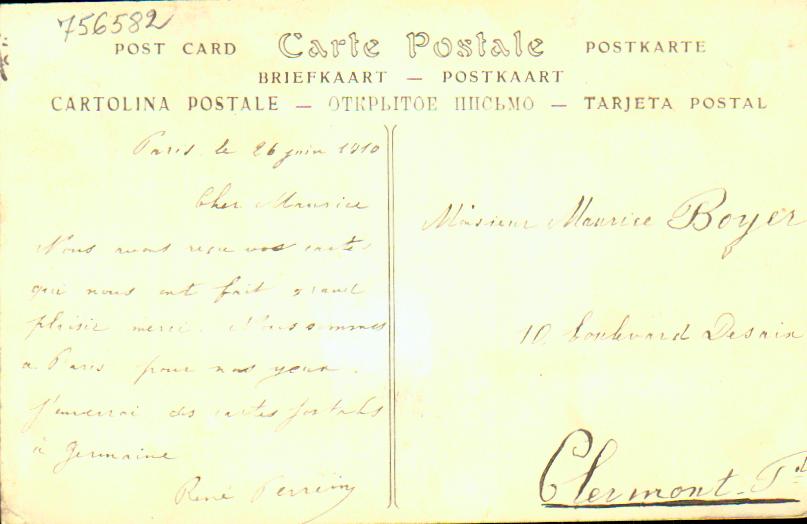 756582
POST CARD Carte Postale POSTKARTE
BRIEFKAART — POSTKAART
CARTOLINA POSTALE — ОТКРЫТОЕ ПИСЬМО — TARJETA POSTAL
Paris le 26 juin 1910
Cher Maurice
Nous avons reçu vos cartes
qui nous ont fait grand
plaisir merci. Nous sommes
a Paris pour nos yeux.
J'enverrai des cartes postales
à Germaine
René
Monsieur Maurice Boyer
10 boulevard Desaix
Clermont-Fd